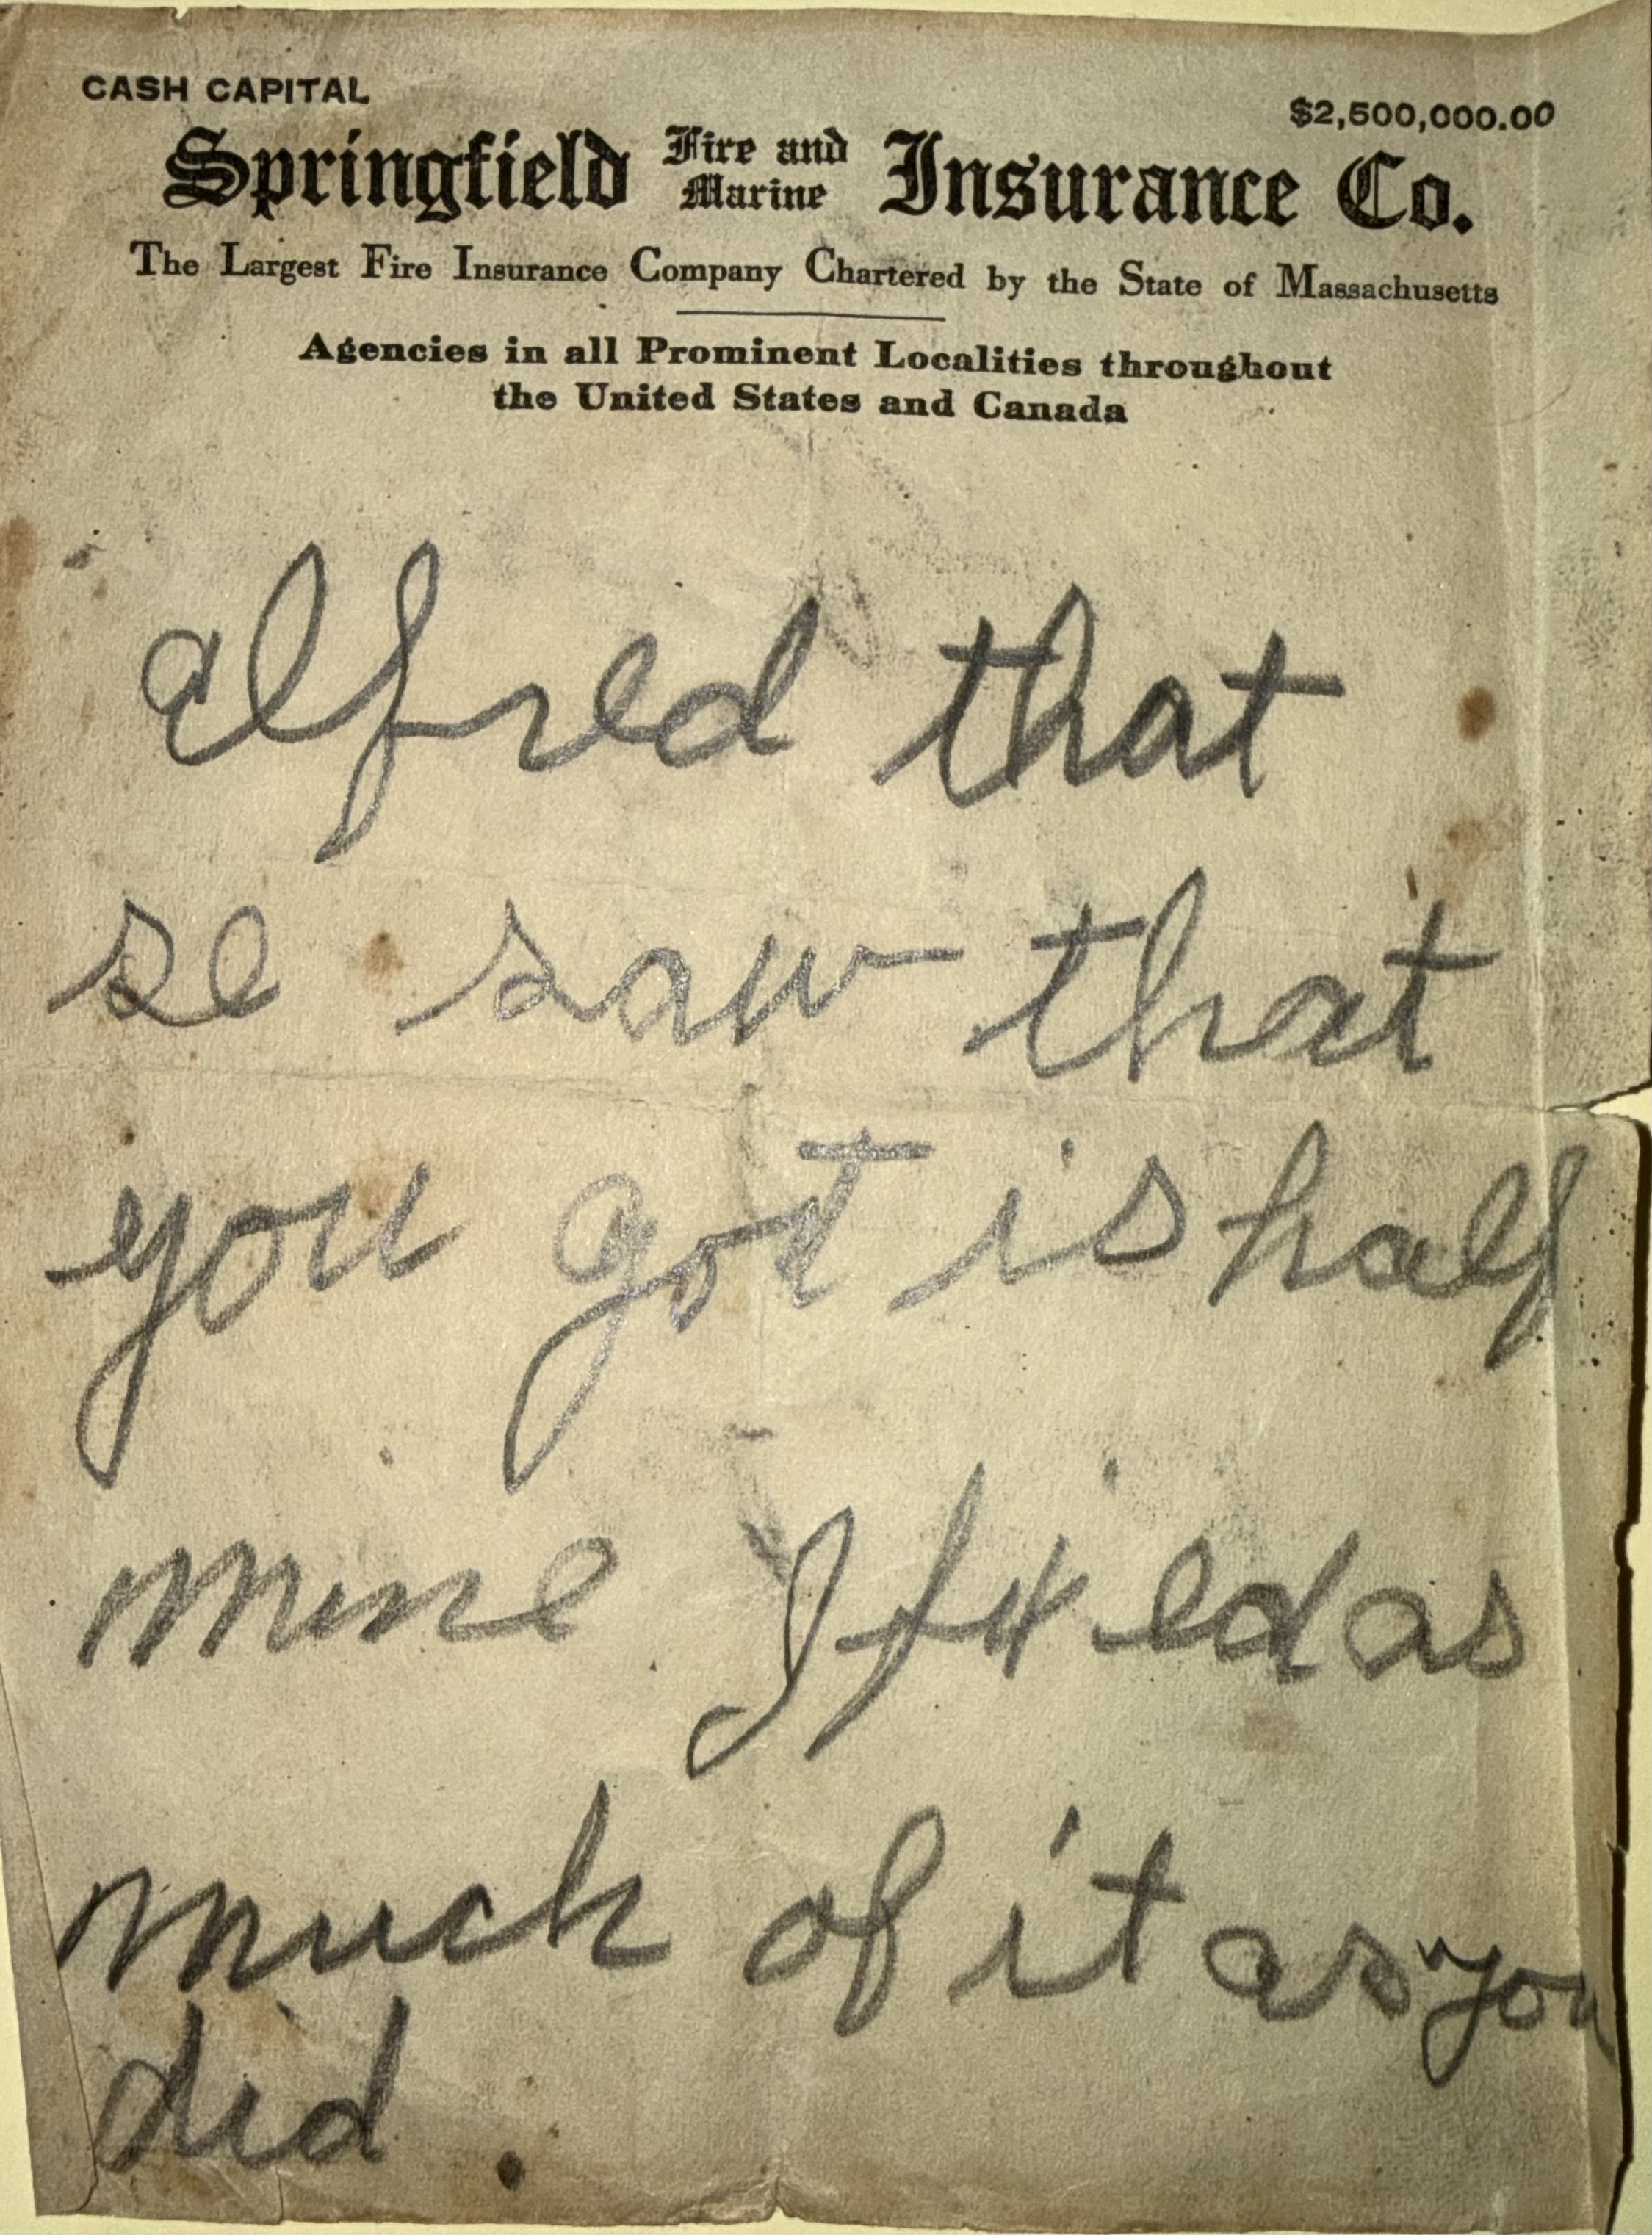 CASH CAPITAL $2,500,000.00
Springfield Fire and Marine Insurance Co.
The Largest Fire Insurance Company Chartered by the State of Massachusetts
Agencies in all Prominent Localities throughout
the United States and Canada
alfred that
se saw that
you got is half
mine I fixed as
much of it as you
did.